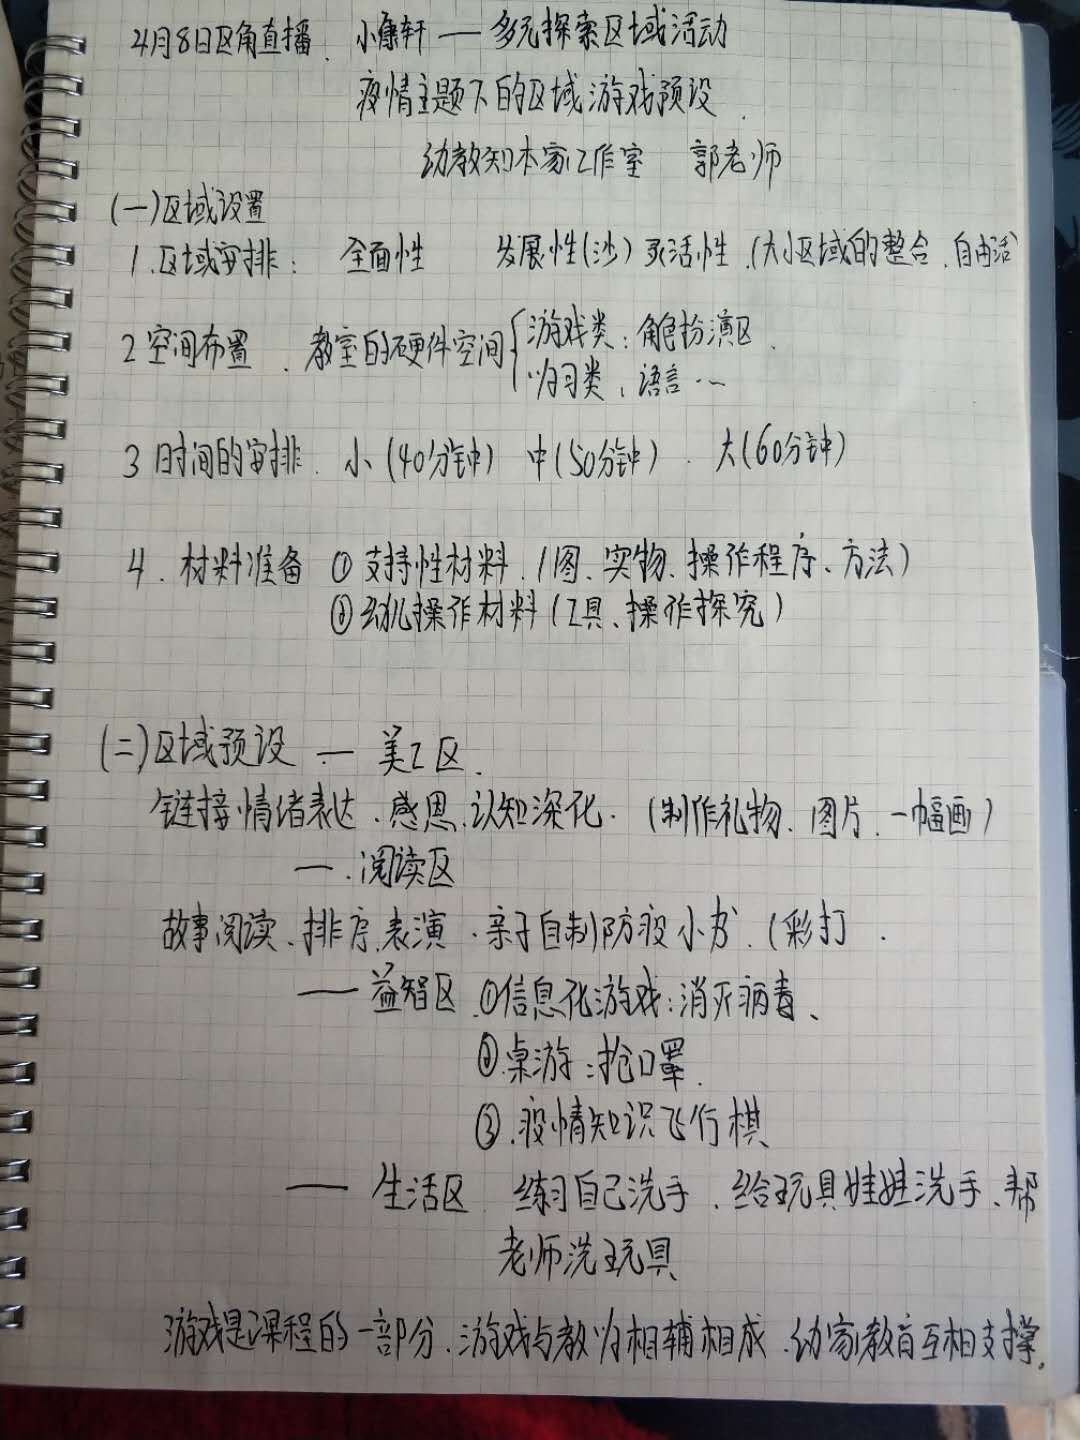 4月8日区角直播、小康轩——多元探索区域活动
疫情主题下的区域游戏预设.
幼教知本家工作室 郭老师
(一)区域设置
1.区域安排: 全面性 发展性(沙) 灵活性.(大小区域的整合、自由活
2空间布置、教室的硬件空间{游戏类:角色扮演区.
学习类、语言…
3时间的安排. 小(40分钟) 中(50分钟). 大(60分钟)
4.材料准备 ①支持性材料.(图、实物、操作程序、方法)
②幼儿操作材料(工具、操作探究)
(二)区域预设 — 美工区.
链接、情绪表达、感恩、认知深化.(制作礼物、图片、一幅画)
—.阅读区
故事阅读、排序、表演、亲子自制防疫小书.(彩打.
——益智区.①信息化游戏:消灭病毒、
②桌游:抢口罩.
③.疫情知识飞行棋
——生活区 练习自己洗手、给玩具娃娃洗手、帮
老师洗玩具
游戏是课程的一部分.游戏与教学相辅相成.幼家教育互相支撑.